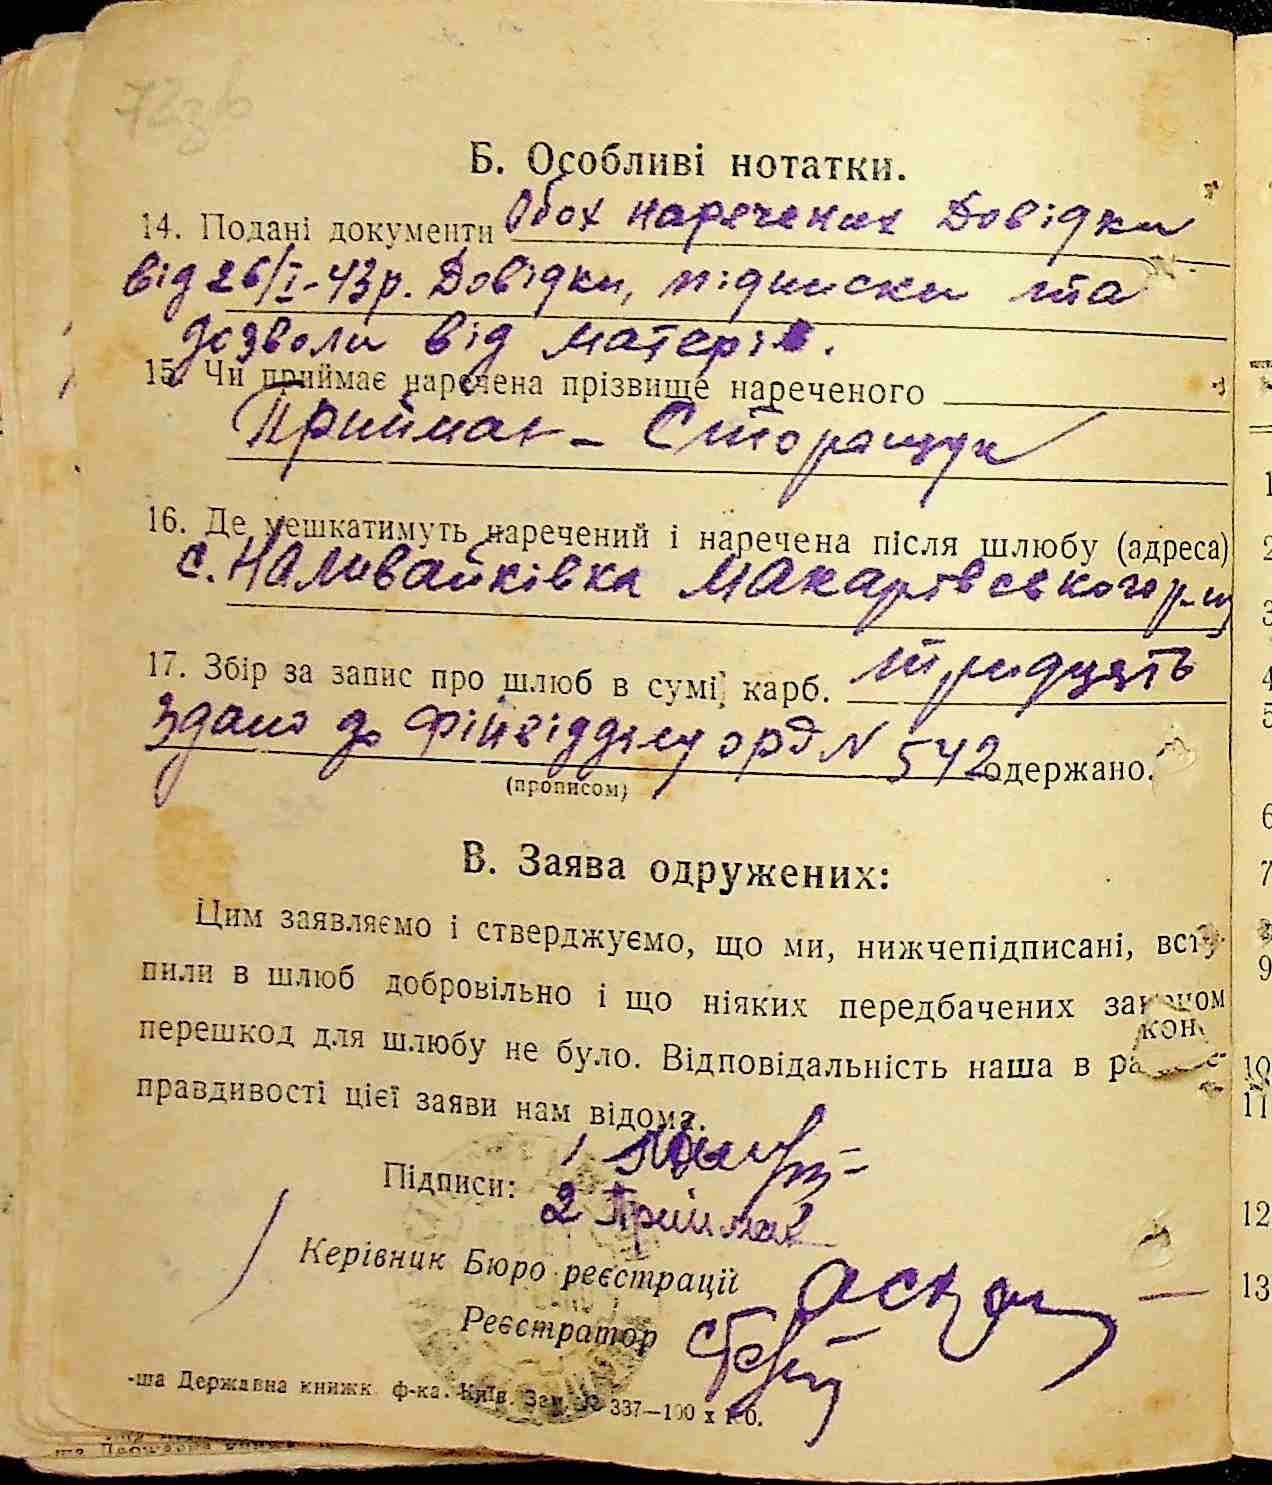 72зв
Б. Особливі нотатки.
14. Подані документи Обох наречених Довідки
від 26/I-43р. Довідки, підписки та
дозволи від матерів.
15. Чи приймає наречена прізвище нареченого
Приймає - Сторащук
16. Де мешкатимуть наречений і наречена після шлюбу (адреса)
с. Наливайківка Макарівського р-ну
17. Збір за запис про шлюб в сумі карб. тридцять
Здано до фінвідділу орд N 542 одержано.
(прописом)
В. Заява одружених:
Цим заявляємо і стверджуємо, що ми, нижчепідписані, всту-
пили в шлюб добровільно і що ніяких передбачених законом
перешкод для шлюбу не було. Відповідальність наша в разі не-
правдивості цієї заяви нам відома.
Підписи: 1
2 Приймак
Керівник Бюро реєстрації
Реєстратор
-ша Державна книжк. ф-ка. Київ. Зам. № 337—100 х 1б.